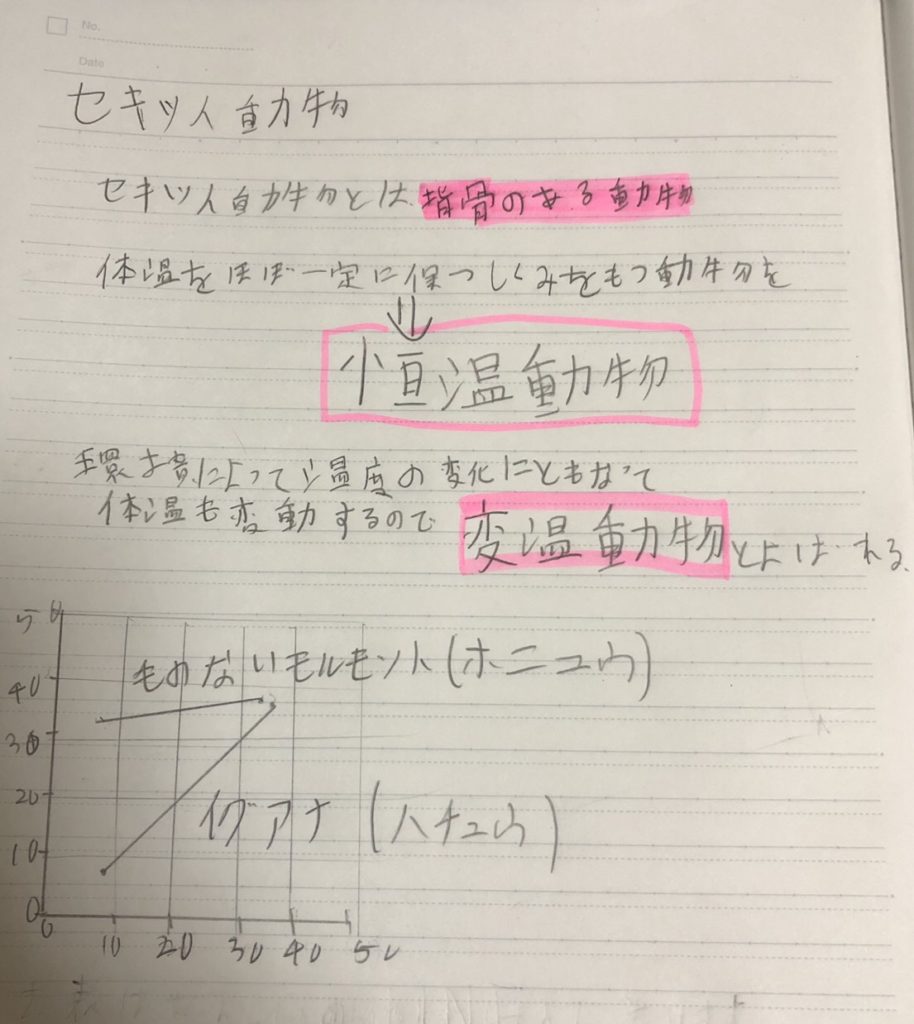 No.
Date
セキツイ動物
セキツイ動物とは背骨のある動物
体温をほぼ一定に保つしくみをもつ動物を
恒温動物
環境によって温度の変化にともなって
体温も変動するので 変温動物とよばれる.
50
40
30
20
10
0
ないモルモット(ホニュウ)
イグアナ (ハチュウ)
0 10 20 30 40 50